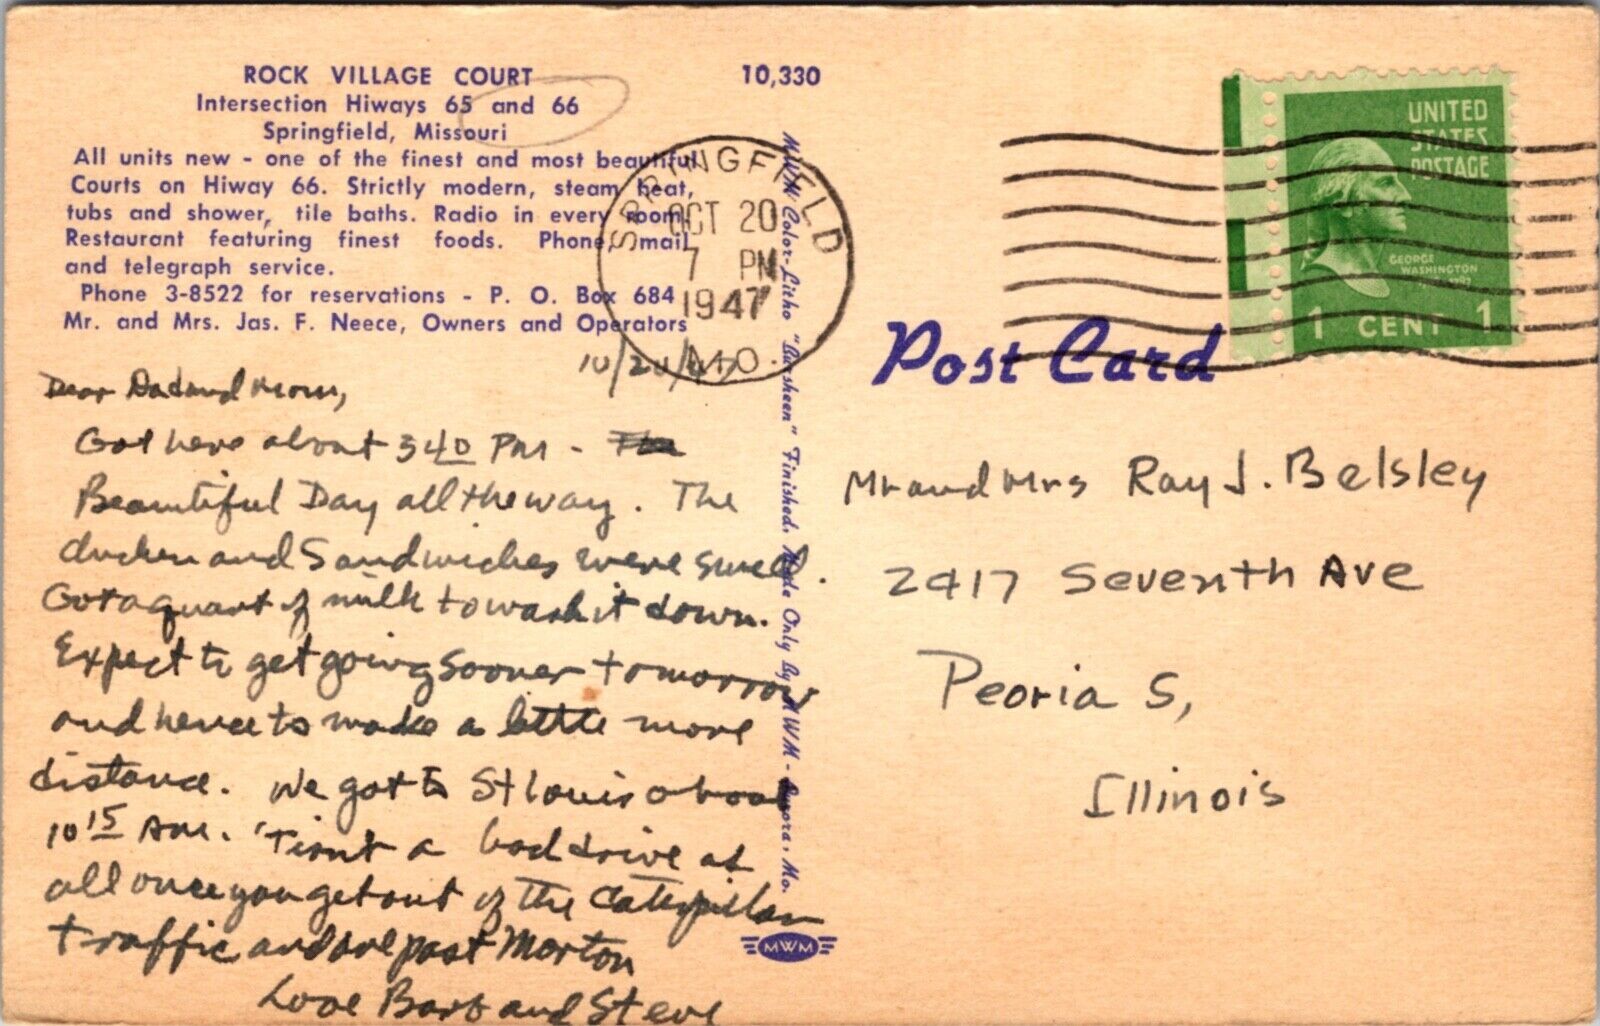 ROCK VILLAGE COURT
Intersection Hiways 65 and 66
Springfield, Missouri
All units new - one of the finest and most beautiful
Courts on Hiway 66. Strictly modern, steam heat,
tubs and shower, tile baths. Radio in every room.
Restaurant featuring finest foods. Phone, mail
and telegraph service.
Phone 3-8522 for reservations - P. O. Box 684
Mr. and Mrs. Jas. F. Neece, Owners and Operators
10,330
10/20/47
Dear Dad and Mom,
Got here about 340 PM -
Beautiful Day all the way. The
chicken and Sandwiches were swell.
Got a quart of milk to wash it down.
Expect to get going sooner tomorrow
and hence to make a little more
distance. We got to St Louis about
10 15 AM. 'Tisnt a bad drive at
all once you get out of the Caterpillar
traffic and are past Morton
Love Barb and Steve
MWM Color-Litho "Bursheen" Finished. Made Only By MWM - Aurora, Mo.
MWM
SPRINGFIELD
OCT 20
7 PM
1947
MO.
UNITED
STATES
POSTAGE
GEORGE
WASHINGTON
1 CENT 1
Post Card
Mr and Mrs Ray J. Belsley
2417 Seventh Ave
Peoria S,
Illinois